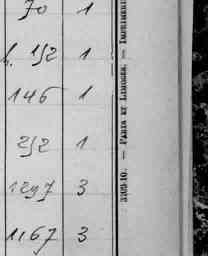 70 1
1/2 1
146 1
2/2 1
1297 3
1167 3
3202-10. — PARIS ET LIMOGES. — IMPRIMERI